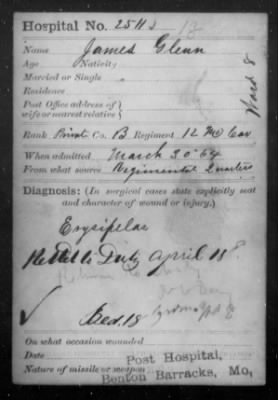 Hospital No. 25113
Name James Glenn
Age Nativity
Married or Single
Residence
Post Office address of
wife or nearest relative
Ward 8
Rank Privt Co. B Regiment 12 Mo Cav
When admitted March 30 "64
From what source Regimental Quarters
Diagnosis: (In surgical cases state explicitly seat
and character of wound or injury.)
Erysipelas
to Duty April 18
Bed. 18
On what occasion wounded
Date
Nature of missile or weapon
Post Hospital,
Benton Barracks, Mo,